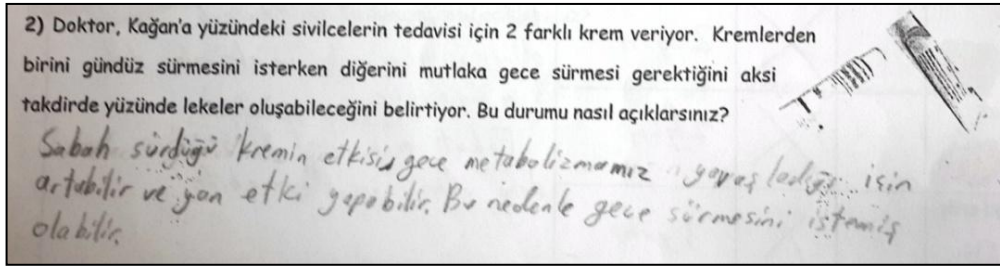 2) Doktor, Kağan'a yüzündeki sivilcelerin tedavisi için 2 farklı krem veriyor. Kremlerden
birini gündüz sürmesini isterken diğerini mutlaka gece sürmesi gerektiğini aksi
takdirde yüzünde lekeler oluşabileceğini belirtiyor. Bu durumu nasıl açıklarsınız?
Sabah sürdüğü kremin etkisi gece metabolizmamız yavaşladığı için
artabilir ve yan etki yapabilir. Bu nedenle gece sürmesini istemiş
olabilir.